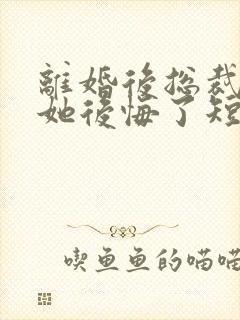 離婚後總裁
她後悔了短
喫魚魚的喵喵